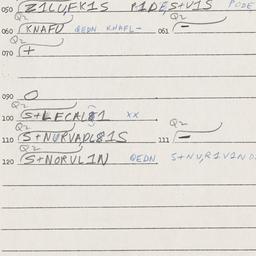 050 Z1LU,FK1S P1DE,S+U1S PODE
Q2
060 KNAFU QEDN KNAFL- 061 Q2 -
Q2
070 +
090 O
Q2
100 S+LECAL81 XX
Q2
110 S+NURVADL81S 111 Q2 -
Q2
120 S+NORUL1N QEDN S+NU,R1V1ND